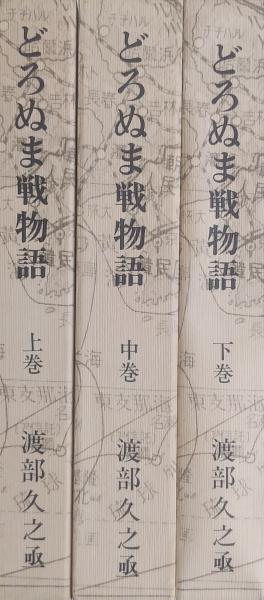 どろぬま戦物語
上巻
渡部久之亟
どろぬま戦物語
中巻
渡部久之亟
どろぬま戦物語
下巻
渡部久之亟